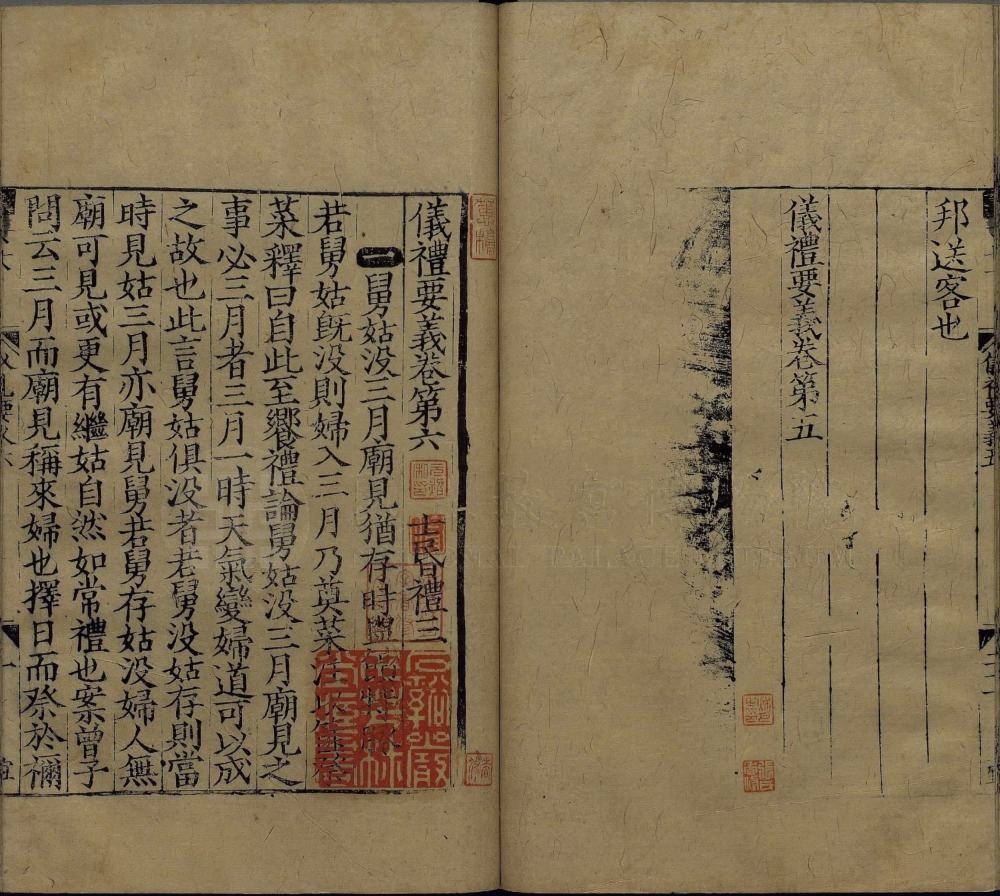 邦送客也
儀禮要義卷第五
儀禮要義五
儀禮要義卷第六 士昏禮三
一 舅姑沒三月廟見猶存時盥饋特豚
若舅姑既沒則婦入三月乃奠菜
菜釋曰自此至饗禮論舅姑沒三月廟見之
事必三月者三月一時天氣變婦道可以成
之故也此言舅姑俱沒者若舅沒姑存則當
時見姑三月亦廟見舅若舅存姑沒婦人無
廟可見或更有繼姑自然如常禮也案曾子
問云三月而廟見稱來婦也擇日而祭於禰